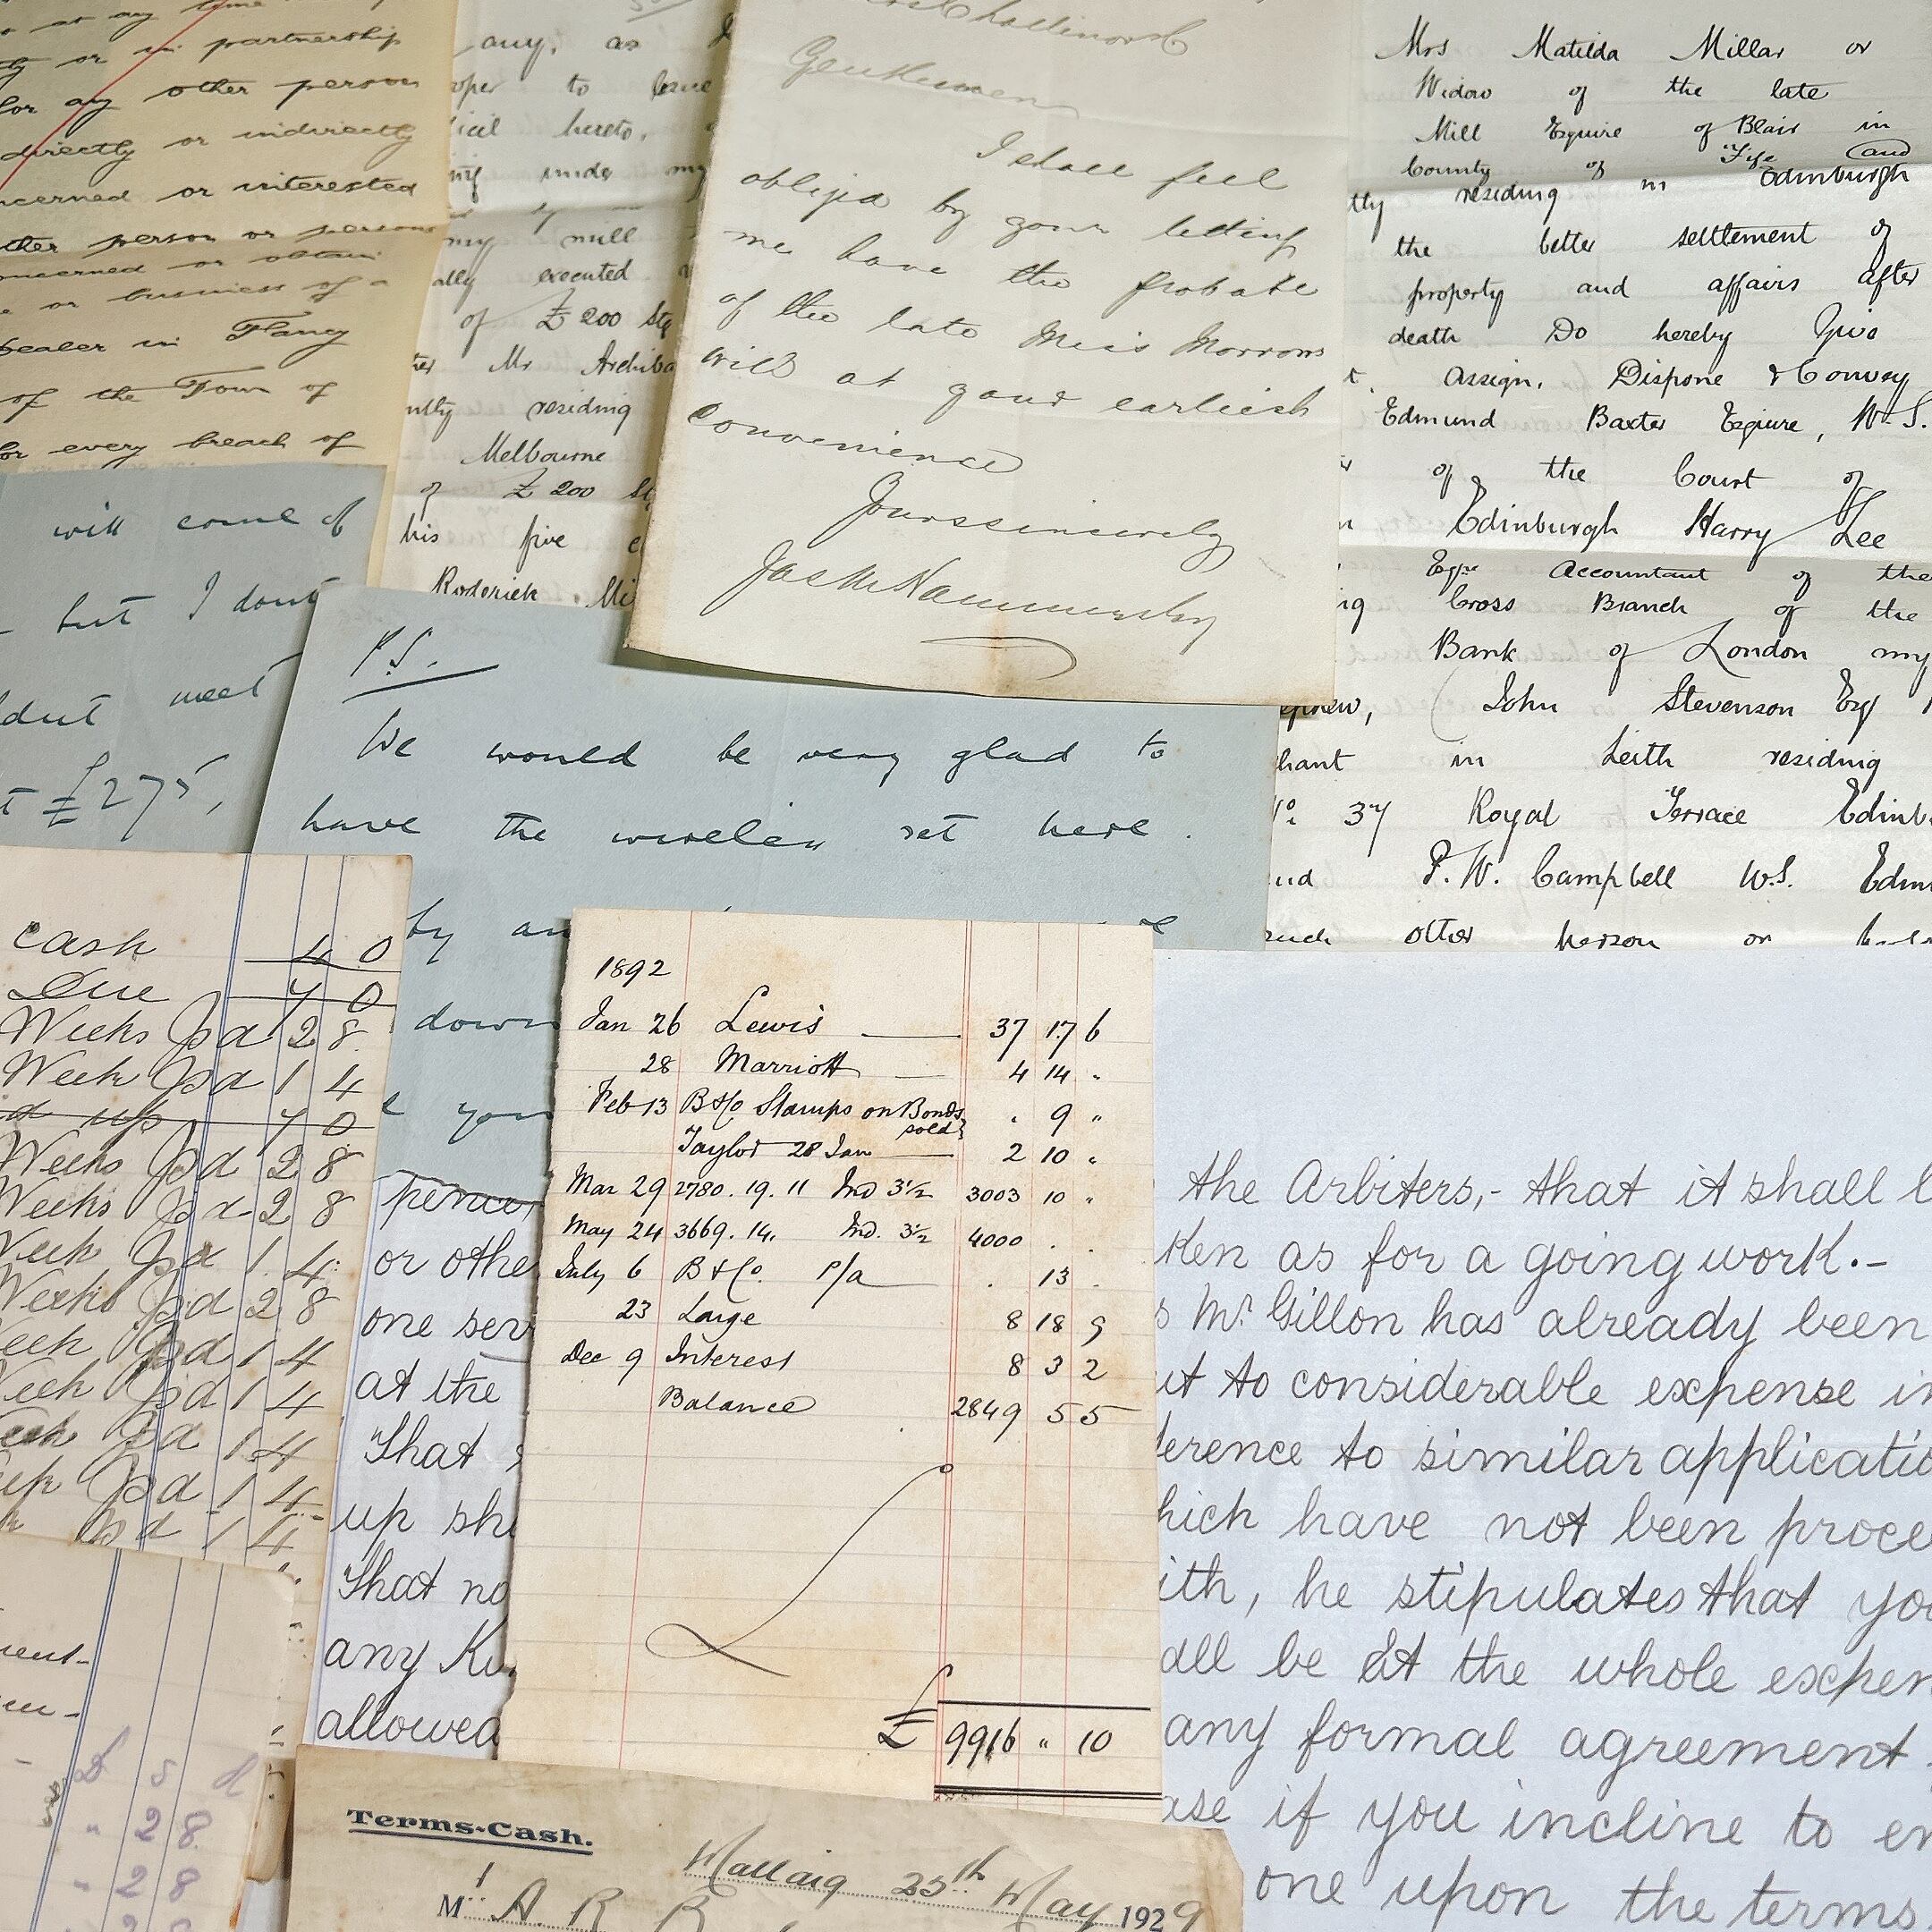 at any time
or in partnership
for any other person
directly or indirectly
concerned or interested
other person or persons
concerned or obtain
or business of a
Dealer in Fancy
of the Town of
for every breach of
any, as
to leave
hereto,
under my
my will
executed
of £200 Stg
Mr Archiba
residing
Melbourne
of £200 St
his five
Roderick Mi
Gentlemen
I shall feel
obliged by your letting
me have the probate
of the late Miss Morrows
will at your earliest
convenience
Yours sincerely
Mrs Matilda Millar or
Widow of the late
Mill Esquire of Blair in
County of Fife and
residing in Edinburgh
the better settlement of
property and affairs after
death Do hereby Give
Assign, Dispone & Convey
Edmund Baxter Esquire, W.S.
of the Court of
Edinburgh Harry Lee
Esqre Accountant of the
Cross Branch of the
Bank of London my
John Stevenson Esq
in Leith residing
No. 37 Royal Terrace Edinb
P. W. Campbell W.S. Edin
such other person or
will come of
but I dont
meet
£275,
P.S.
We would be very glad to
have the wireless set here.
by an
down
you
Cash 4 0
Due 4 0
Weeks Pd 2 8
Week Pd 1 4
up 4 0
Weeks Pd 2 8
Weeks Pd 2 8
Week Pd 1 4
Weeks Pd 2 8
Week Pd 1 4
Week Pd 1 4
Pd 1 4
Pd 1 4
Pd 1 4
1892
Jan 26 Lewis 37 17 6
28 Marriott 4 14 "
Feb 13 B & Co Stamps on Bonds sold . 9 "
Taylor 28 Jan 2 10 "
Mar 29 2780. 19. 11 Ind 3½ 3003 10 "
May 24 3669. 14. Ind. 3½ 4000 . .
July 6 B & Co. P/a . 13 .
23 Large 8 18 9
Dec 9 Interest 8 3 2
Balance 2849 5 5
£ 9916 " 10
pence,
or othe
one serv
at the
That
up sh
That no
any
allowed
the Arbiters,- that it shall
as for a going work.-
Mr. Gillon has already been
to considerable expense in
to similar applicatio
have not been proce
he stipulates that you
be at the whole expen
any formal agreement
if you incline to en
one upon the terms
£ s d
" 2 8
" 2 8
Terms-Cash.
Mallaig 25th May 1929
Mr A. R. B